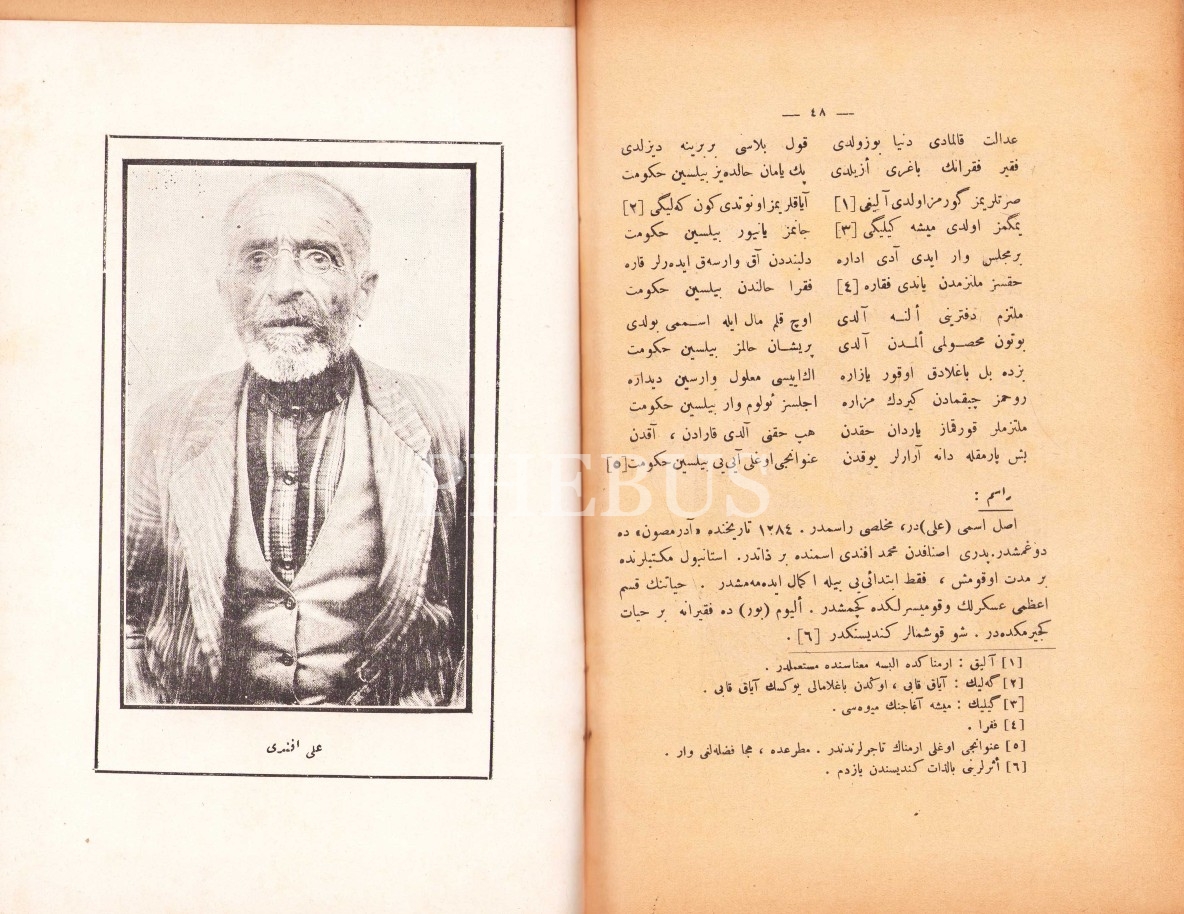 علی افندی
— ٤٨ —
عدالت قالمادی دنیا بوزولدی قول بلاسی بربرینه دیزلدی
فقیر فقرانك باغری أزیلدی پك یامان حالده‌یز بیلسین حکومت
صرتلریمز گورمز اولدی آلیغی [١] آیاقلریمز اونوتدی کون که‌لیگی [٢]
یمگمز اولدی میشه کیلیگی [٣] جانمز یانیور بیلسین حکومت
برمجلس وار ایدی آدی اداره دلبنددن آق وارسه‌ق ایده‌رلر قاره
حقسز ملتزمدن یاندی فقاره [٤] فقرا حالندن بیلسین حکومت
ملتزم دفترینی ألنه آلدی اوچ قلم مال ایله اسممی بولدی
بوتون محصولمی ألمدن آلدی پریشان حالمز بیلسین حکومت
بزده بل باغلادق اوقور یازاره اك اییسی معلول وارسین دیداره
روحمز چیقمادن کیردك مزاره اجلسز ئولوم وار بیلسین حکومت
ملتزملر قورقماز یاردان حقدن هپ حقنی آلدی قارادن ، آقدن
بش پارمقله دانه آرارلر یوقدن عنوانجی اوغلی آیی بیلسین حکومت [٥]
راسم :
اصل اسمی (علی)در، مخلصی راسمدر . ١٢٨٤ تاریخنده «آدرمصون» ده
دوغمشدر.پدری اصنافدن محمد افندی اسمنده بر ذاتدر. استانبول مکتبلرنده
بر مدت اوقومش ، فقط ابتدائی‌یی بیله اکمال ایده‌مه‌مشدر . حیاتنك قسم
اعظمی عسکرلك وقومیسرلکده کچمشدر . ألیوم (بور) ده فقیرانه بر حیات
کچیرمکده‌در . شو قوشمالر کندیسنکدر [٦] .
[١] آلیق : ارمناکده البسه معناسنده مستعملدر .
[٢] گه‌لیك : آیاق قابی ، اوکدن باغلامالی یوکسك آیاق قابی .
[٣] گیلیك : میشه آغاجنك میوه‌سی .
[٤] فقرا .
[٥] عنوانجی اوغلی ارمناك تاجرلرندندر . مطرعده ، هجا فضله‌لغی وار .
[٦] أثرلرینی بالذات کندیسندن یازدم .
PHEBUS